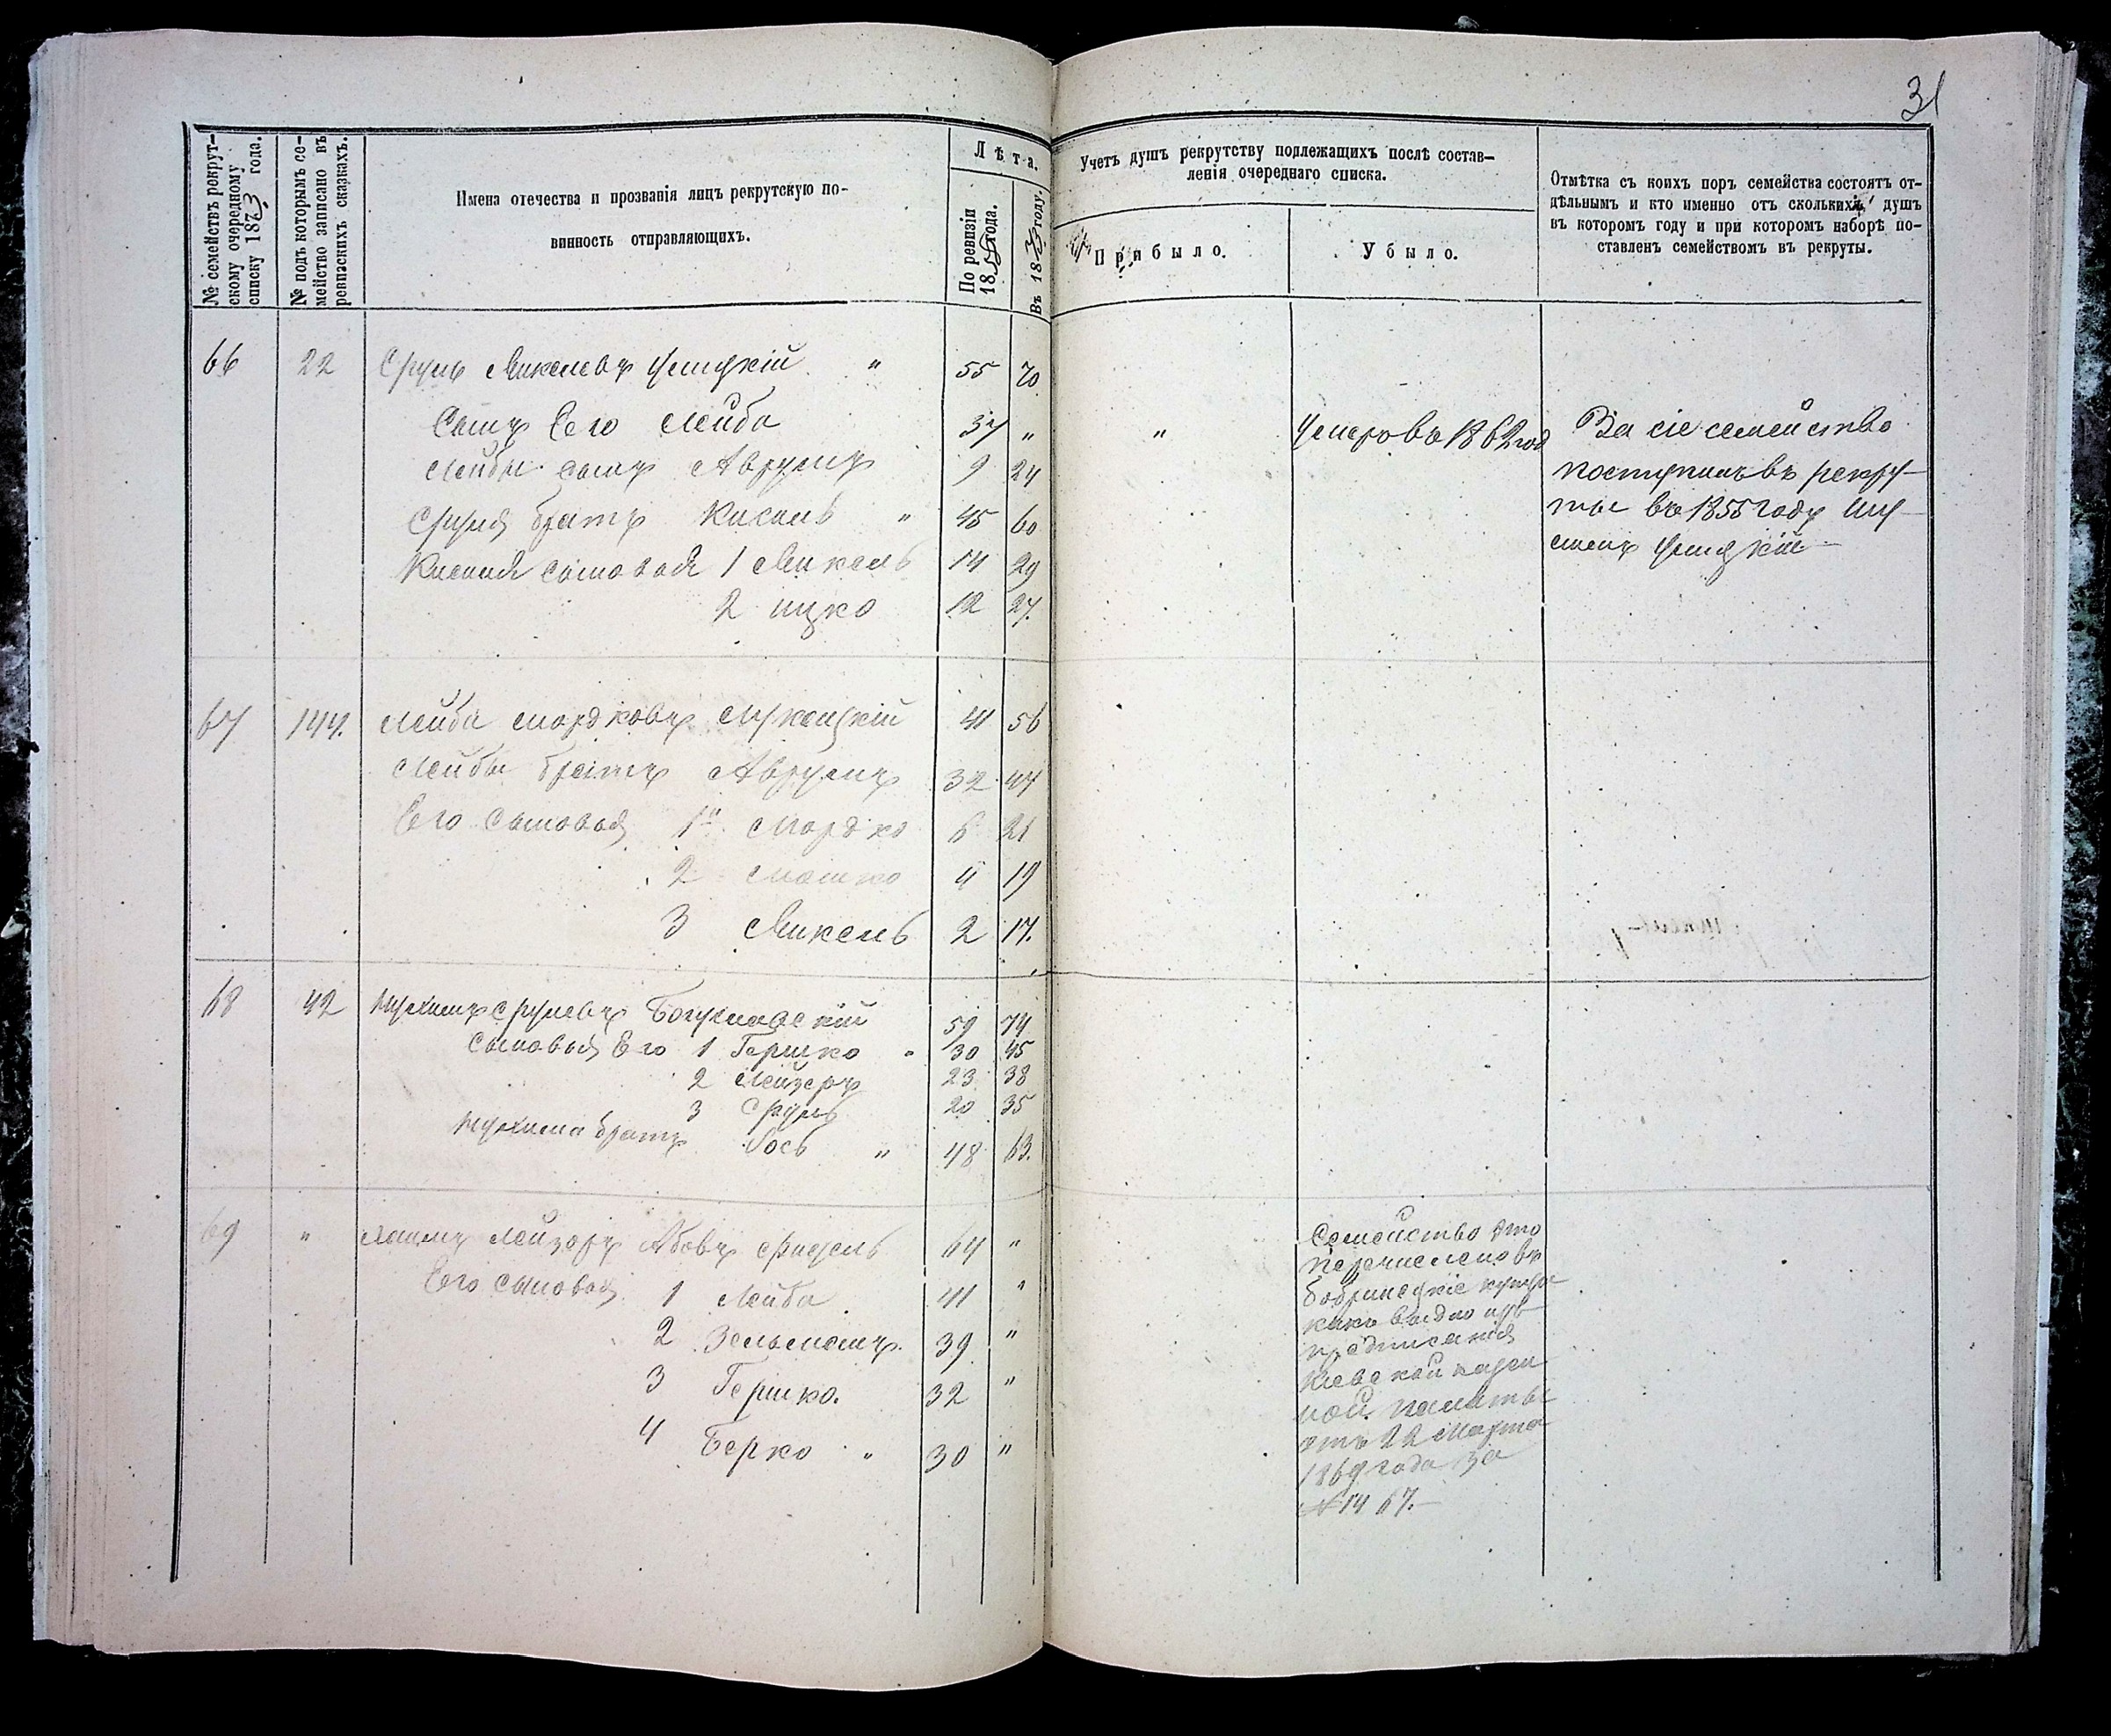 31
№ семействъ рекрут-
скому очередному
списку 1873 года.
№ подъ которымъ се-
мейство записано въ
ревизскихъ сказкахъ.
Имена отечества и прозванія лицъ рекрутскую по-
винность отправляющихъ.
Лѣта.
По ревизіи
1858 года.
Въ 1873 году.
Учетъ душъ рекрутству подлежащихъ послѣ состав-
ленія очереднаго списка.
Прибыло.
Убыло.
Отмѣтка съ коихъ поръ семейства состоятъ от-
дѣльнымъ и кто именно отъ сколькихъ душъ
въ которомъ году и при которомъ наборѣ по-
ставленъ семействомъ въ рекруты.
66 22 Сруль Микелевъ Ушицкій " 55 70
Сынъ Его Лейба 37 " " Умеръ въ 1862 год
Лейбы сынъ Аврумъ 9 24
Сруля братъ Кисиль " 45 60
Кисиля сыновья 1 Микель 14 29
2 Ицко 12 27.
За сіе семейство
поступилъ въ рекру-
ты въ 1855 году
Ушицкій
67 144. Лейба Мордковъ 41 56
Лейбы братъ Аврумъ 32 47
Его сыновья 1й Мордко 6 21
2 Мошко 4 19
3 Микель 2 17.
68 42 Нухимъ Срулевъ Богуславскій 59 74
Сыновья Его 1 Гершко " 30 45
2 Лейзеръ 23 38
3 Сруль 20 35
Нухима братъ Іось " 48 63.
69 " Лейзоръ Абовъ 64 "
Его сыновья 1 Лейба 41 "
2 Зельманъ. 39 "
3 Гершко. 32 "
4 Берко " 30 "
Семейство это
перечислено въ
бобринецкіе купцы
какъ видно изъ
предписанія
Кіевской казен
ной палаты
отъ 22 Марта
1869 года за
№ 1467.